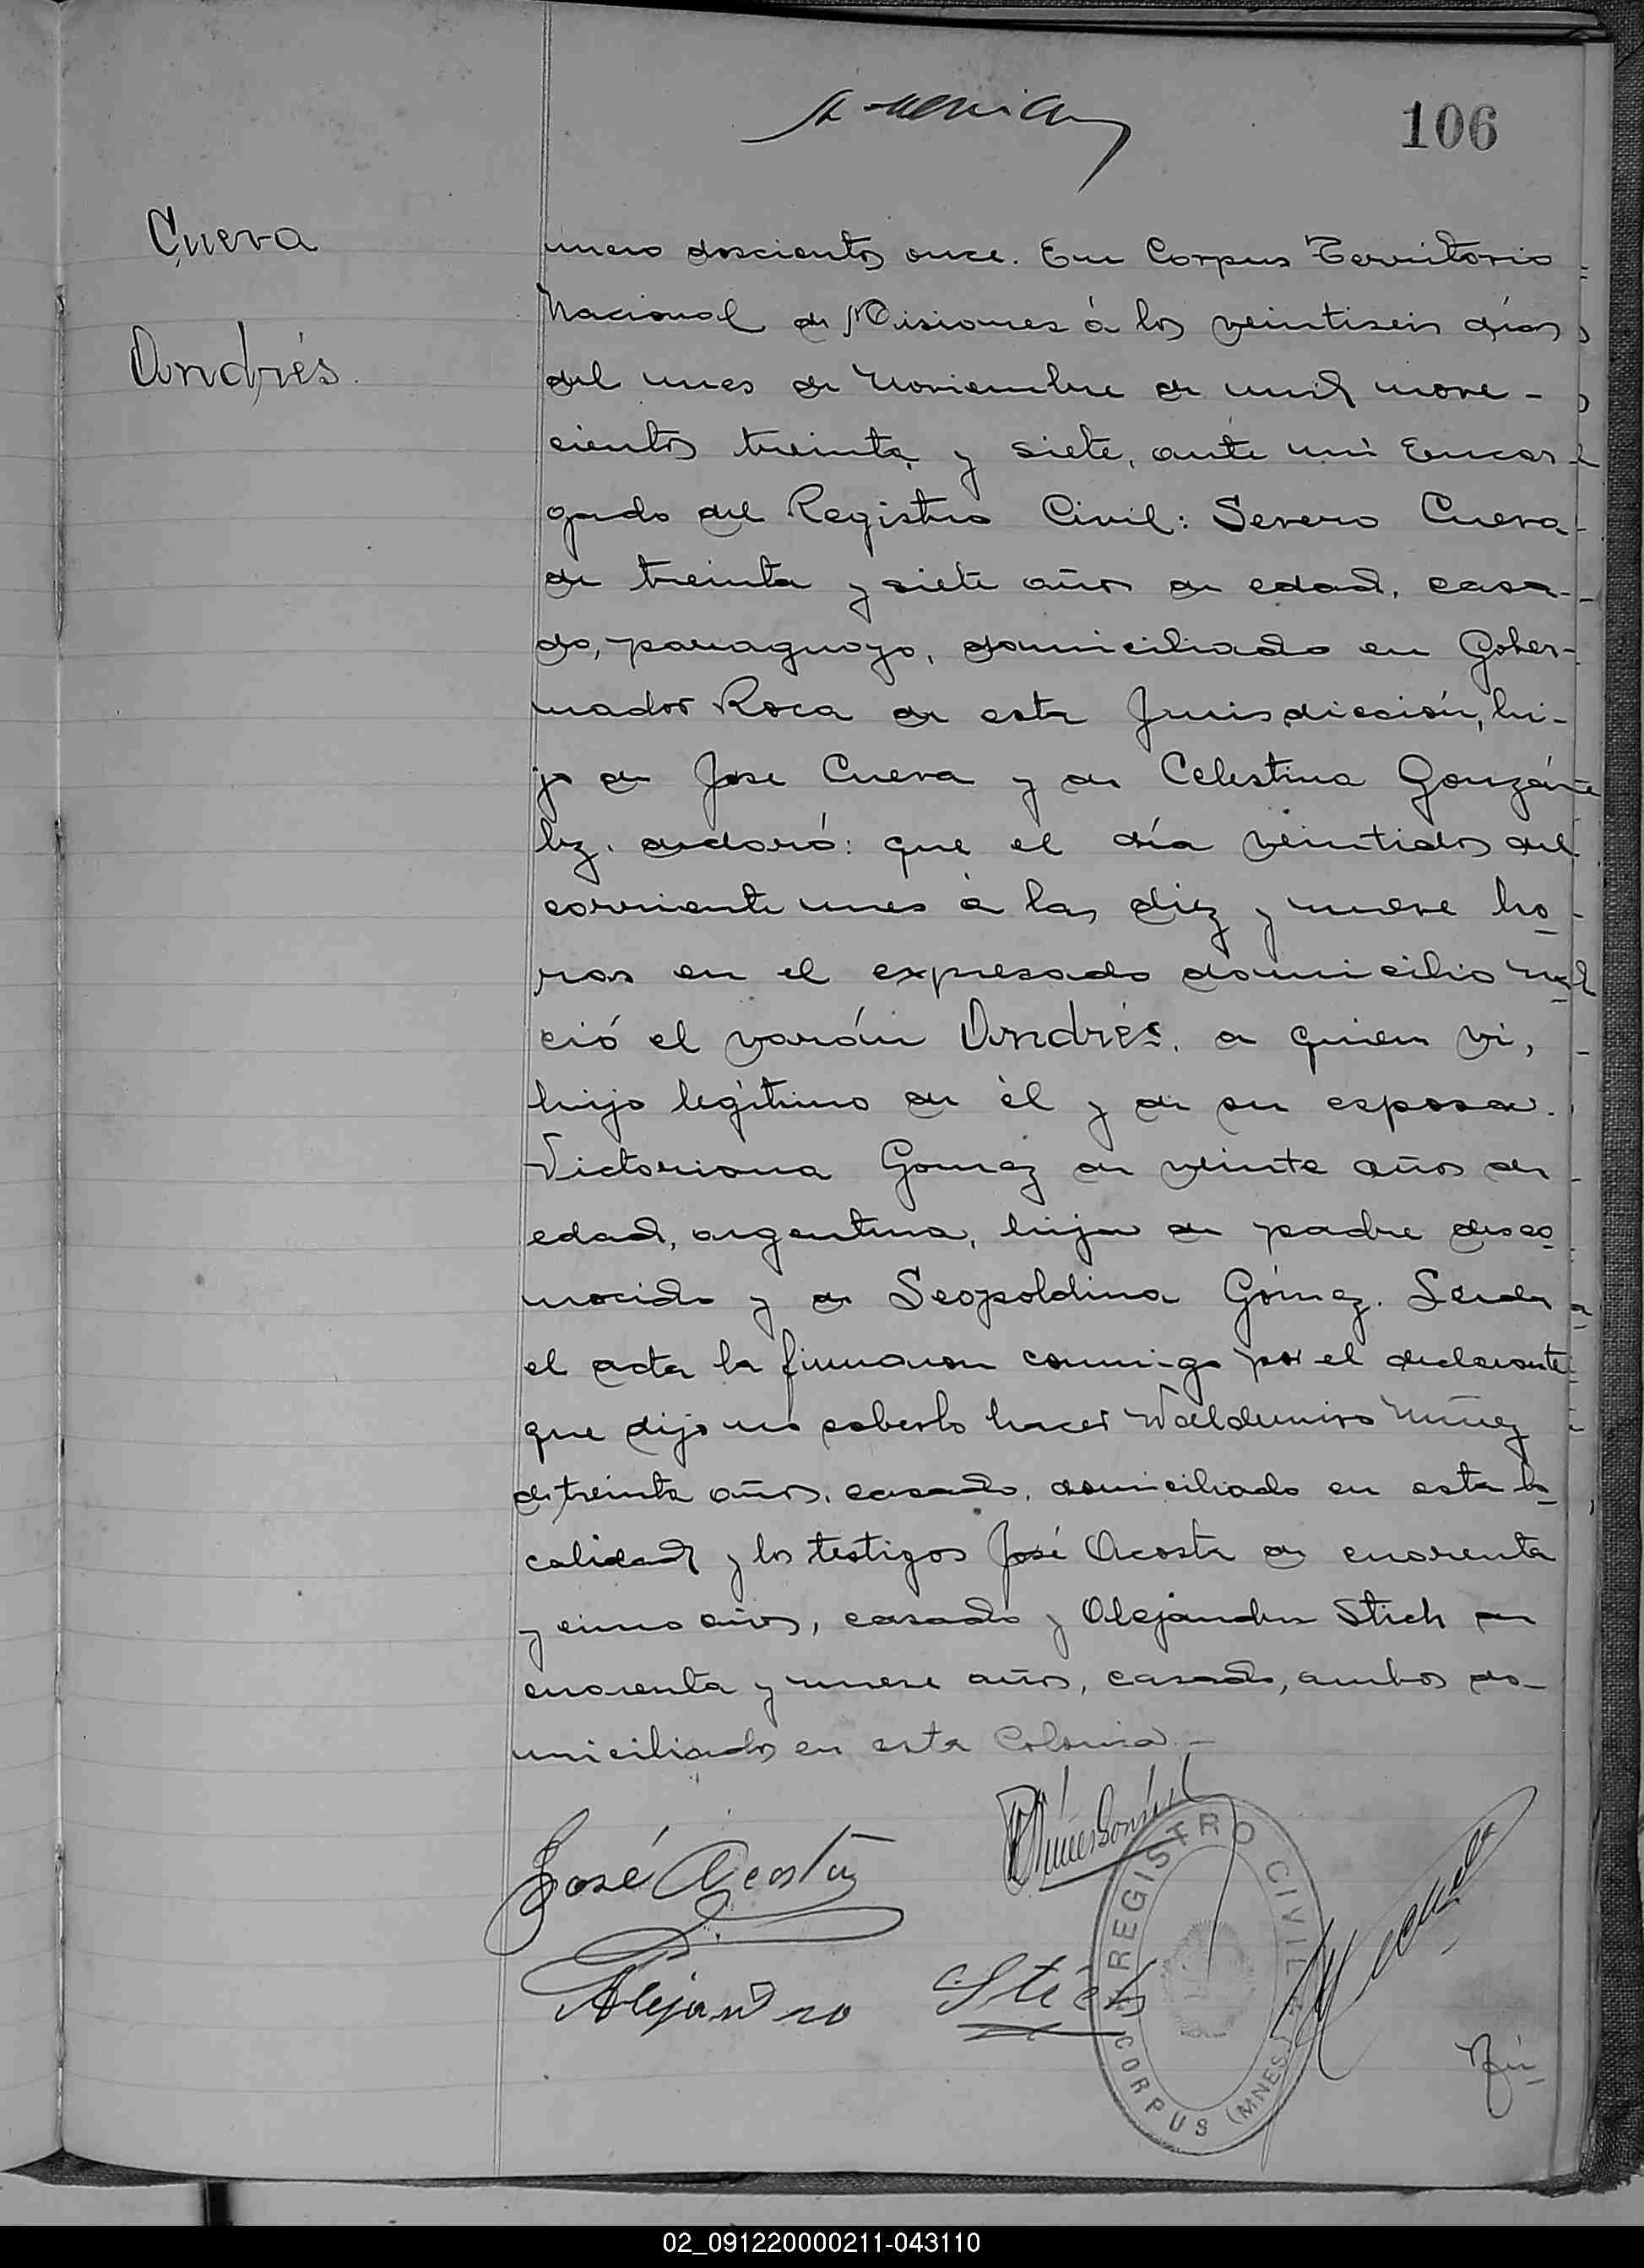 106
Cueva
Andrés.
mero doscientos once. En Corpus Territorio
Nacional de Misiones á los veintiseis días
del mes de Noviembre de mil nove-
cientos treinta y siete, ante mi Encar-
gado del Registro Civil: Severo Cueva
de treinta y siete años de edad, casa-
do, paraguayo, domiciliado en Gober-
nador Roca de esta Jurisdicción, hi-
jo de Jose Cueva y de Celestina Gonzá-
lez, declaró: que el día veintidos del
corriente mes á las diez y nueve ho-
ras en el expresado domicilio na-
ció el varón Andrés, a quien vi,
hijo legítimo de él y de su esposa
Victoriana Gomez de veinte años de
edad, argentina, hija de padre desco-
nocido y de Leopoldina Gómez. Leida
el acta la firmaron conmigo por el declarante
que dijo no saberlo hacer Waldemiro Núñez
de treinta años, casado, domiciliado en esta lo-
calidad y los testigos José Acosta de cuarenta
y cinco años, casado y Alejandro Stich de
cuarenta y nueve años, casado, ambos do-
miciliados en esta Colonia.-
José Acosta
Alejandro Stich
REGISTRO CIVIL
CORPUS (MNES.)
Nú-
02_091220000211-043110